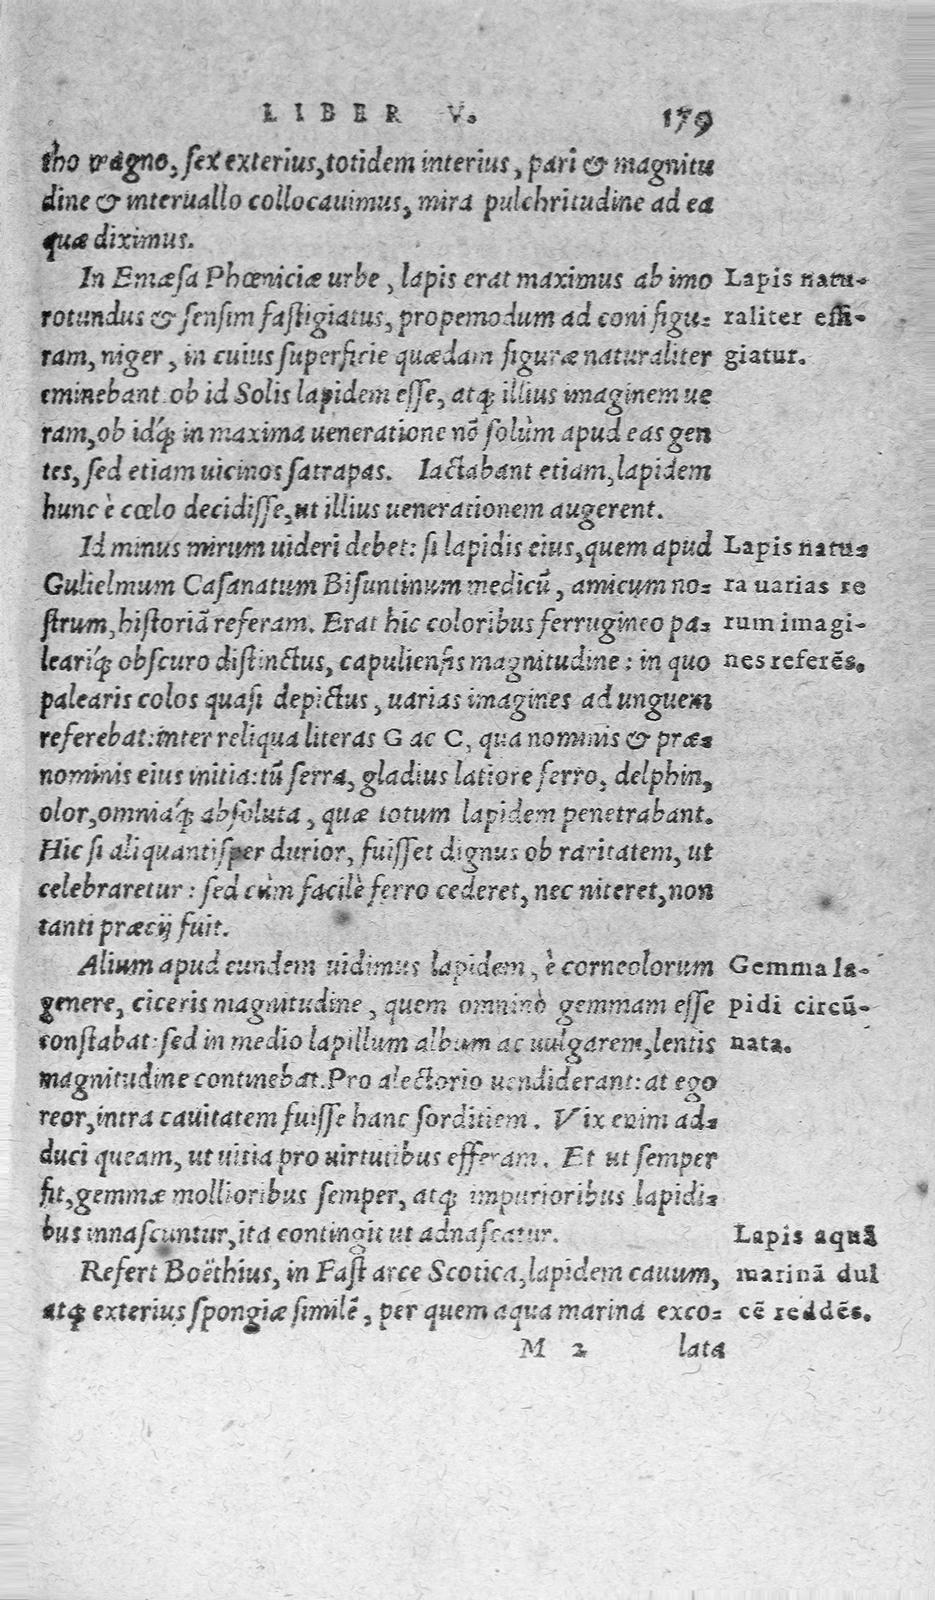 LIBER V. 179
tho magno, sex exterius, totidem interius, pari & magnitu
dine & interuallo collocauimus, mira pulchritudine ad ea
quæ diximus.
In Emæsa Phœniciæ urbe, lapis erat maximus ab imo
rotundus & sensim fastigiatus, propemodum ad coni figu-
ram, niger, in cuius superficie quædam figuræ naturaliter
eminebant ob id Solis lapidem esse, atq; illius imaginem ue
ram, ob idq́; in maxima ueneratione nō solùm apud eas gen
tes, sed etiam uicinos satrapas. Iactabant etiam, lapidem
hunc è cœlo decidisse, ut illius uenerationem augerent.
Lapis natu-
raliter effi-
giatur.
Id minus mirum uideri debet: si lapidis eius, quem apud
Gulielmum Casanatum Bisuntinum medicū, amicum no-
strum, historiā referam. Erat hic coloribus ferrugineo pa-
leariq́; obscuro distinctus, capuliensis magnitudine: in quo
palearis colos quasi depictus, uarias imagines ad unguem
referebat: inter reliqua literas G ac C, qua nominis & præ-
nominis eius initia: tū serra, gladius latiore ferro, delphin,
olor, omniaq́; absoluta, quæ totum lapidem penetrabant.
Hic si aliquantisper durior, fuisset dignus ob raritatem, ut
celebraretur: sed cùm facilè ferro cederet, nec niteret, non
tanti præcij fuit.
Lapis natu-
ra uarias re
rum imagi-
nes referēs.
Alium apud eundem uidimus lapidem, è corneolorum
genere, ciceris magnitudine, quem omninò gemmam esse
constabat: sed in medio lapillum album ac uulgarem, lentis
magnitudine continebat. Pro alectorio uendiderant: at ego
reor, intra cauitatem fuisse hanc sorditiem. Vix enim ad-
duci queam, ut uitia pro uirtutibus efferam. Et ut semper
fit, gemmæ mollioribus semper, atq; impurioribus lapidi-
bus innascuntur, ita contingit ut adnascatur.
Gemma la-
pidi circū-
nata.
Refert Boëthius, in Fast arce Scotica, lapidem cauum,
atq; exterius spongiæ similē, per quem aqua marina exco-
Lapis aquā
marinā dul
cē reddēs.
M 2 lata